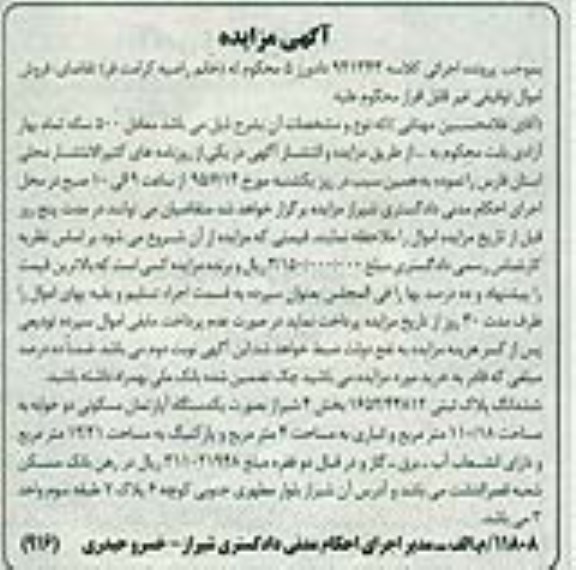 آگهی مزایده
بموجب پرونده اجرائی کلاسه ۹۴۱۳۴۴ دادورز ۵ محکوم له (خانم راضیه کرامت فر) تقاضای فروش
اموال توقیفی غیر قابل فرار محکوم علیه
(آقای غلامحسین مهدلی) که نوع و مشخصات آن بشرح ذیل می باشد معادل ۵۰۰ سکه تمام بهار
آزادی بابت محکوم به - از طریق مزایده و انتشار آگهی در یکی از روزنامه های کثیرالانتشار محلی
استان فارس را نموده به همین سبب در روز یکشنبه مورخ ۹۵/۶/۱۴ از ساعت ۹ الی ۱۰ صبح در محل
اجرای احکام مدنی دادگستری شیراز مزایده برگزار خواهد شد متقاضیان می توانند در مدت پنج روز
قبل از تاریخ مزایده اموال را ملاحظه نمایند قیمتی که مزایده از آن شروع می شود بر اساس نظریه
کارشناس رسمی دادگستری مبلغ ریال و برنده مزایده کسی است که بالاترین قیمت
را پیشنهاد و ده درصد بها را فی المجلس بعنوان سپرده به قسمت اجراء تسلیم و بقیه بهای اموال را
ظرف مدت ۳۰ روز از تاریخ مزایده پرداخت نماید در صورت عدم پرداخت مابقی اموال سپرده تودیعی
پس از کسر هزینه مزایده به نفع دولت ضبط خواهد شد این آگهی نوبت دوم می باشد ضمناً ده درصد
مبلغی که قادر به خرید مورد مزایده می باشید چک تضمین شده بانک ملی بهمراه داشته باشید.
ششدانگ پلاک ثبتی بخش ۴ شیراز بصورت یکدستگاه آپارتمان مسکونی دو خوابه به
مساحت ۱۱۰/۱۸ متر مربع و انباری به مساحت ۴ متر مربع و پارکینگ به مساحت ۱۲/۲۱ متر مربع
و دارای انشعاب آب - برق - گاز و در قبال دو فقره مبلغ ریال در رهن بانک مسکن
شعبه قصرالدشت می باشد و آدرس آن شیراز بلوار مطهری جنوبی کوچه ۶ پلاک ۷ طبقه سوم واحد
۳ می باشد.
۱۱۸۰۸/م الف - مدیر اجرای احکام مدنی دادگستری شیراز - خسرو حیدری (۹۱۶)